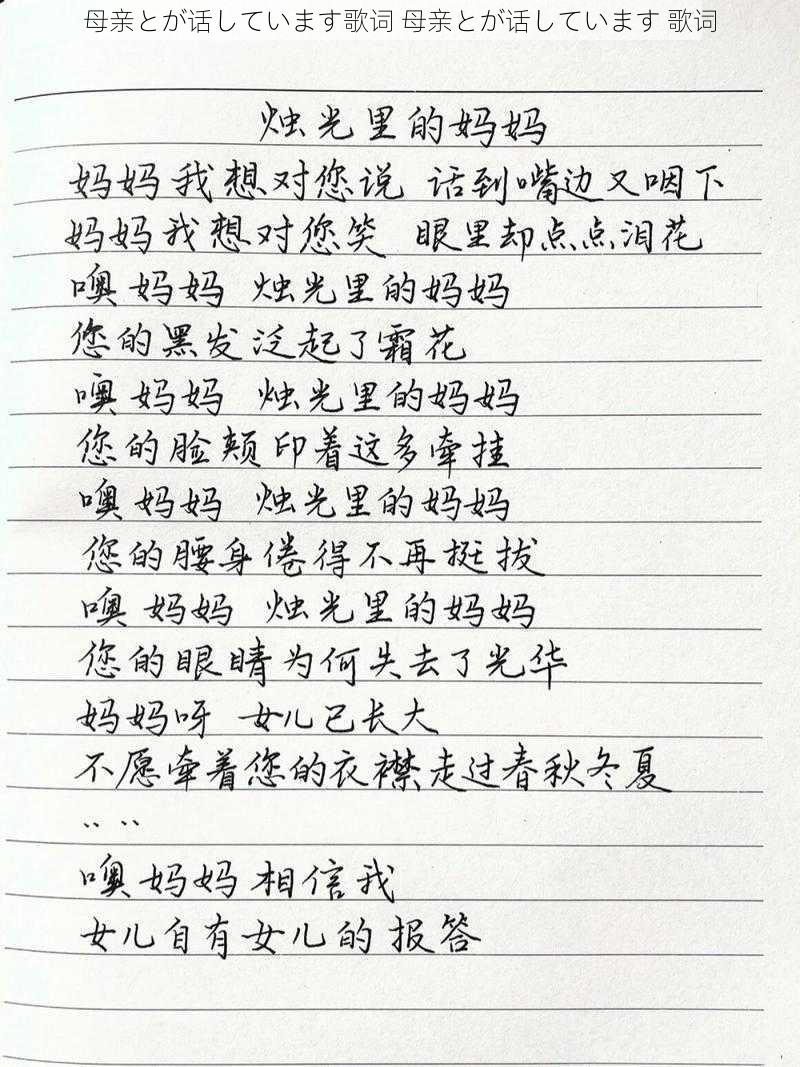 母亲とが话しています歌词 母亲とが话しています 歌词
烛光里的妈妈
妈妈我想对您说 话到嘴边又咽下
妈妈我想对您笑 眼里却点点泪花
噢妈妈 烛光里的妈妈
您的黑发泛起了霜花
噢妈妈 烛光里的妈妈
您的脸颊印着这多牵挂
噢妈妈 烛光里的妈妈
您的腰身倦得不再挺拔
噢妈妈 烛光里的妈妈
您的眼睛为何失去了光华
妈妈呀 女儿已长大
不愿牵着您的衣襟走过春秋冬夏
‥ ‥
噢妈妈相信我
女儿自有女儿的报答